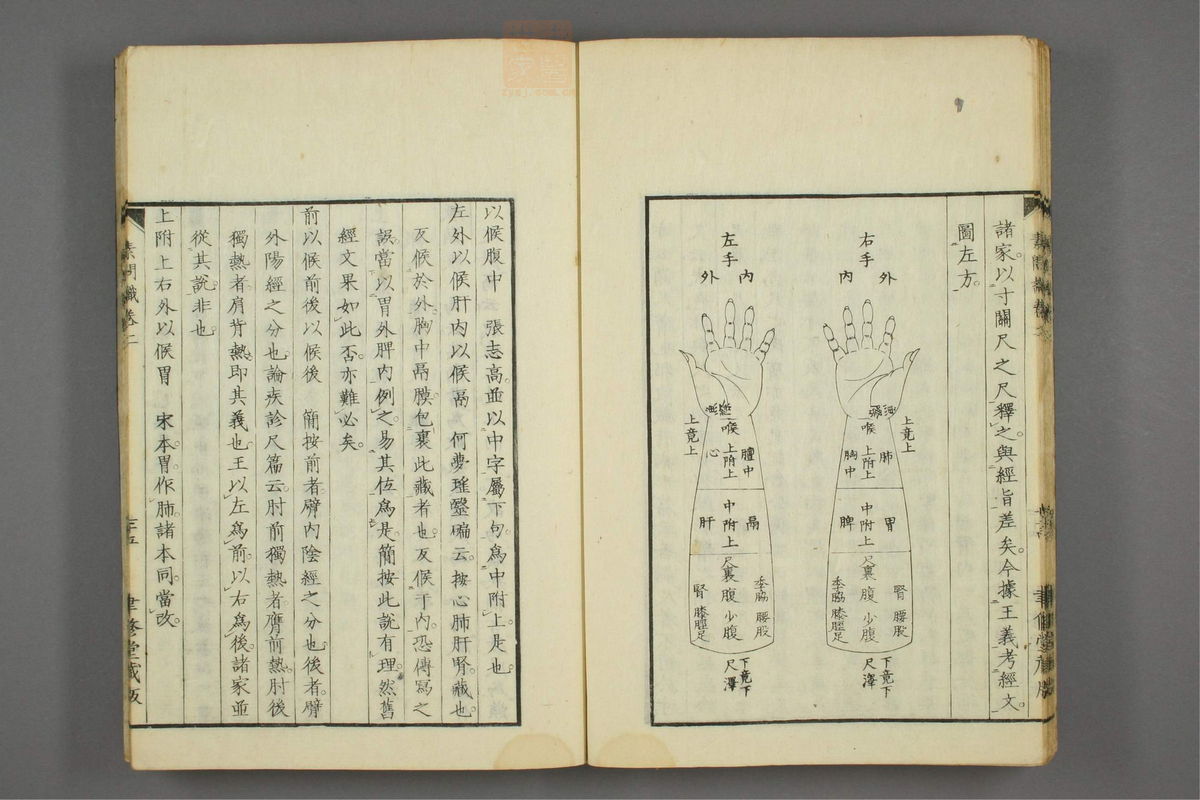 諸家以寸關尺之尺釋之與經旨差矣今據王義考經文
圖左方
右手
外
內
上竟上
喉
肺
上附上
胸中
胃
中附上
脾
尺裏
腎
腰股
腹
少腹
季脇
膝脛足
下竟下
尺澤
左手
內
外
上竟上
喉
膻中
上附上
心
鬲
中附上
肝
尺裏
季脇
腰股
腹
少腹
腎
膝脛足
下竟下
尺澤
以候腹中 張志高並以中字屬下句為中附上是也
左外以候肝內以候鬲 何夢瑤醫碥云按心肺肝腎藏也
反候於外胸中鬲膜包裹此藏者也反候于內恐傳寫之
誤當以胃外脾內例之易其位為是簡按此說有理然舊
經文果如此否亦難必矣
前以候前後以候後 簡按前者臂內陰經之分也後者臂
外陽經之分也論疾診尺篇云肘前獨熱者膺前熱肘後
獨熱者肩背熱即其義也王以左為前以右為後諸家並
從其說非也
上附上右外以候胃 宋本胃作肺諸本同當改
素問識卷二
聿修堂藏版